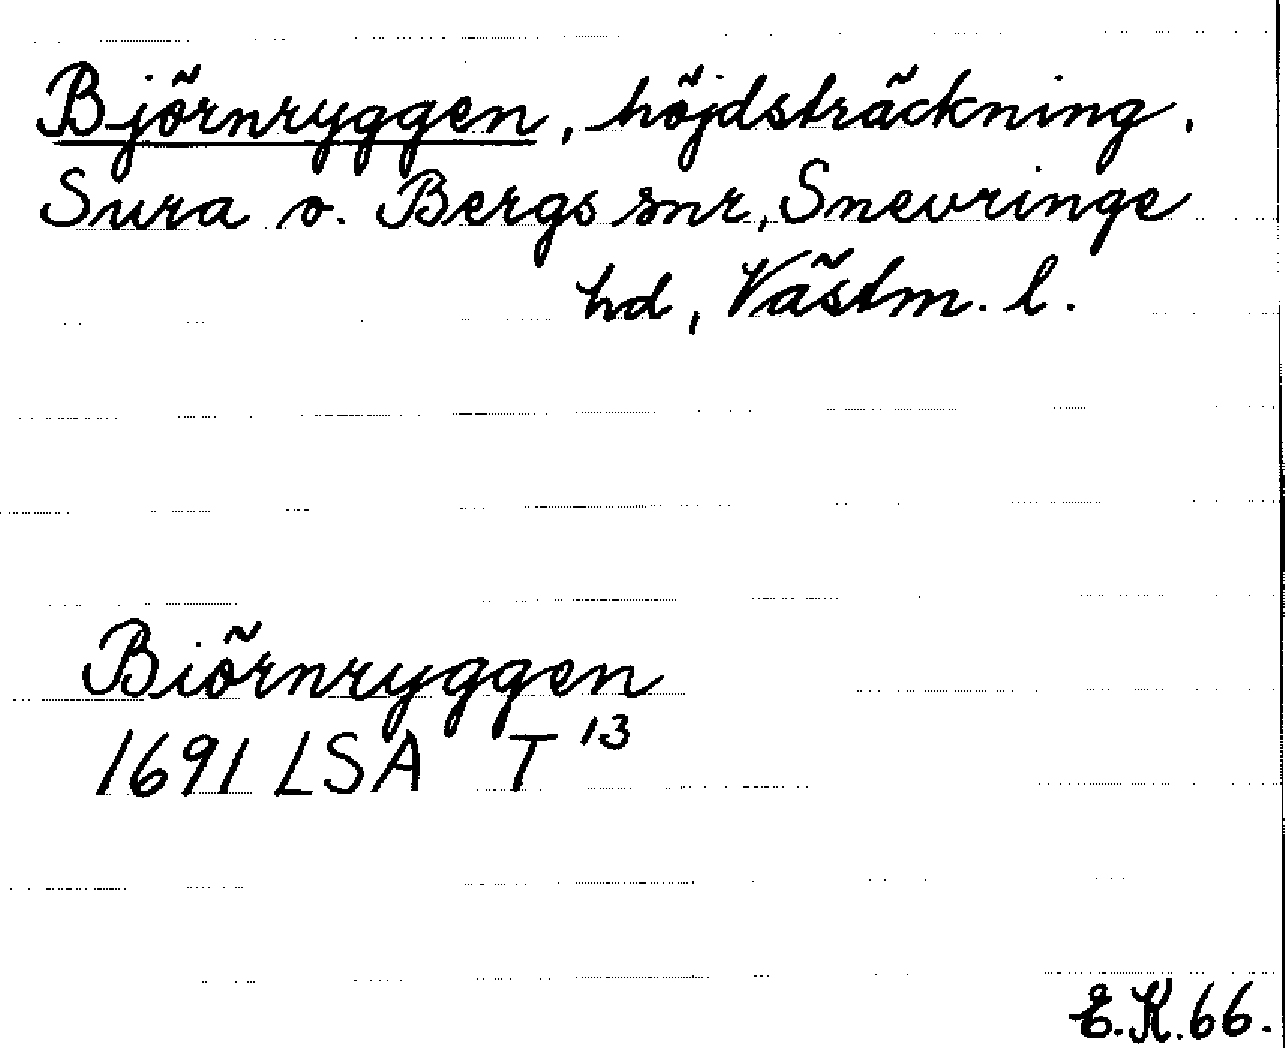 Björnryggen, höjdsträckning.
Sura o. Bergs snr, Snevringe
hd, Västm. l.
Biörnryggen
1691 LSA T 13
E.K. 66.